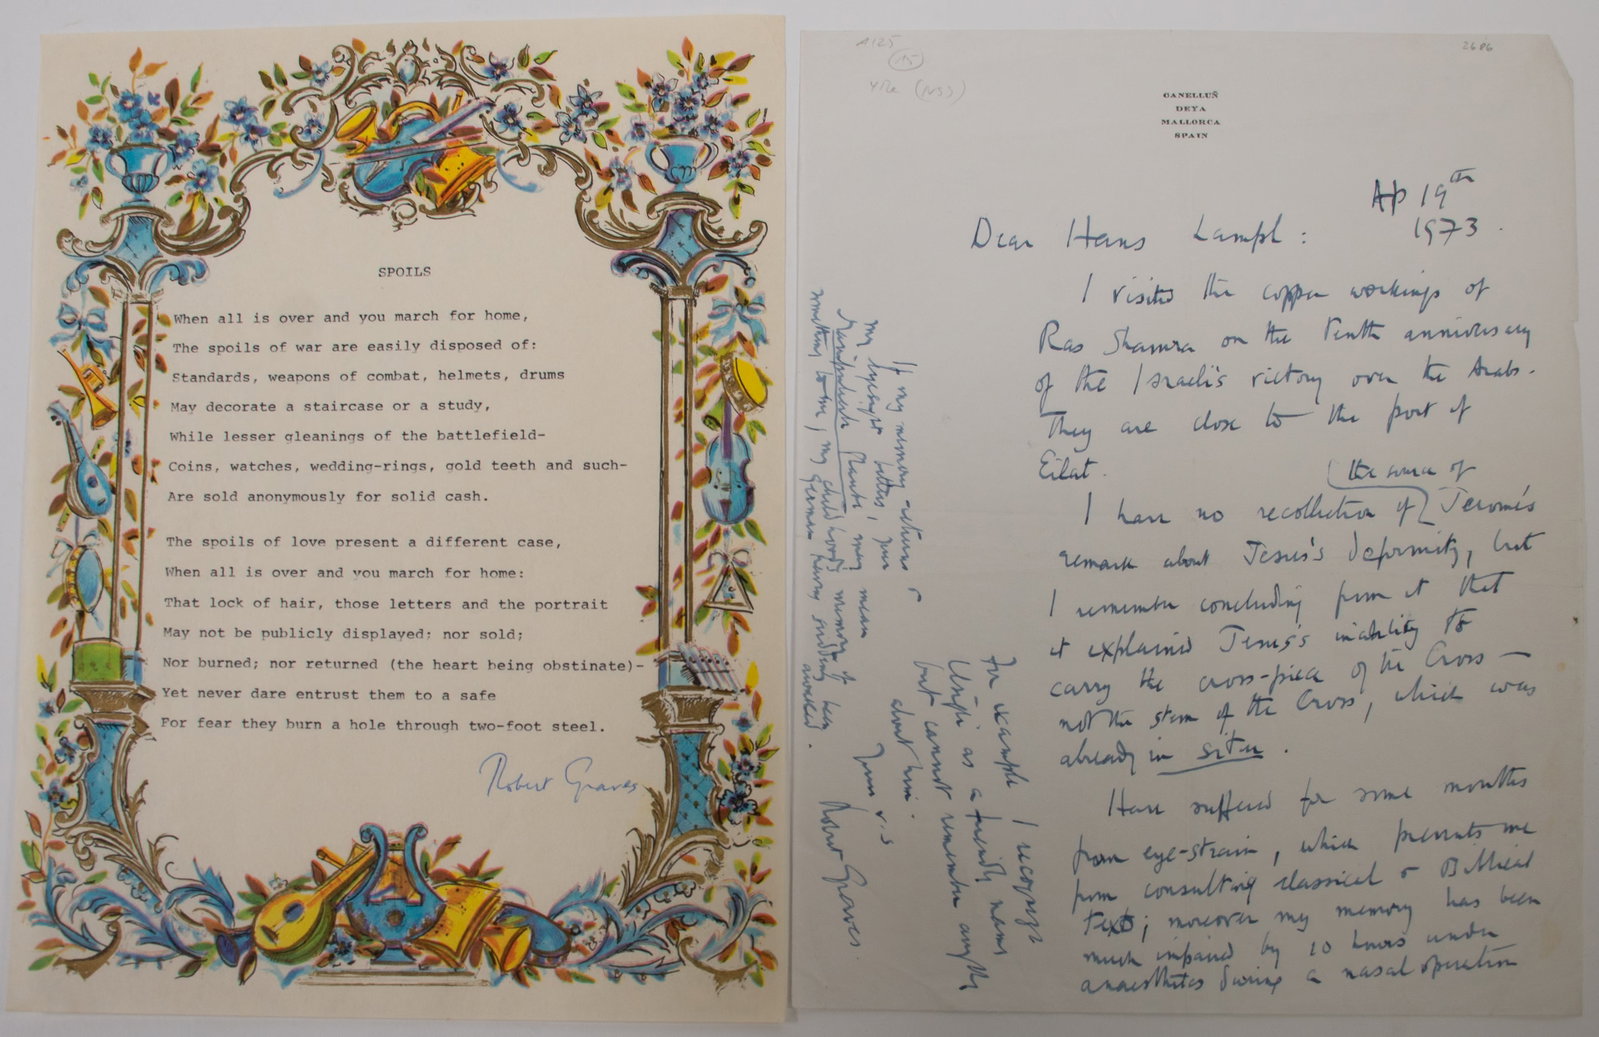 SPOILS
When all is over and you march for home,
The spoils of war are easily disposed of:
Standards, weapons of combat, helmets, drums
May decorate a staircase or a study,
While lesser gleanings of the battlefield-
Coins, watches, wedding-rings, gold teeth and such-
Are sold anonymously for solid cash.
The spoils of love present a different case,
When all is over and you march for home:
That lock of hair, those letters and the portrait
May not be publicly displayed; nor sold;
Nor burned; nor returned (the heart being obstinate)-
Yet never dare entrust them to a safe
For fear they burn a hole through two-foot steel.
Robert Graves
A125
(NSS)
2686
CANELLUÑ
DEYA
MALLORCA
SPAIN
Ap 19th
1973.
Dear Hans Lampl:
I visited the copper workings of
Ras Shamra on the tenth anniversary
of the Israeli's victory over the Arabs.
They are close to the port of
Eilat.
the source of
I have no recollection of Jerome's
remark about Jesus's deformity, but
I remember concluding from it that
it explained Jesus's inability to
carry the cross-piece of the Cross —
not the stem of the Cross, which was
already in situ.
Have suffered for some months
from eye-strain, which prevents me
from consulting classical & Biblical
texts; moreover my memory has been
much impaired by 10 hours under
anaesthetes during a nasal operation
For example I recognize
Usägi as a friend's name
but cannot remember anything
about him.
If my memory returns &
my eyesight betters, your
may mean
something to me, my childhood's memory of
German having suddenly been
awoken.
Yours v. s
Robert Graves.